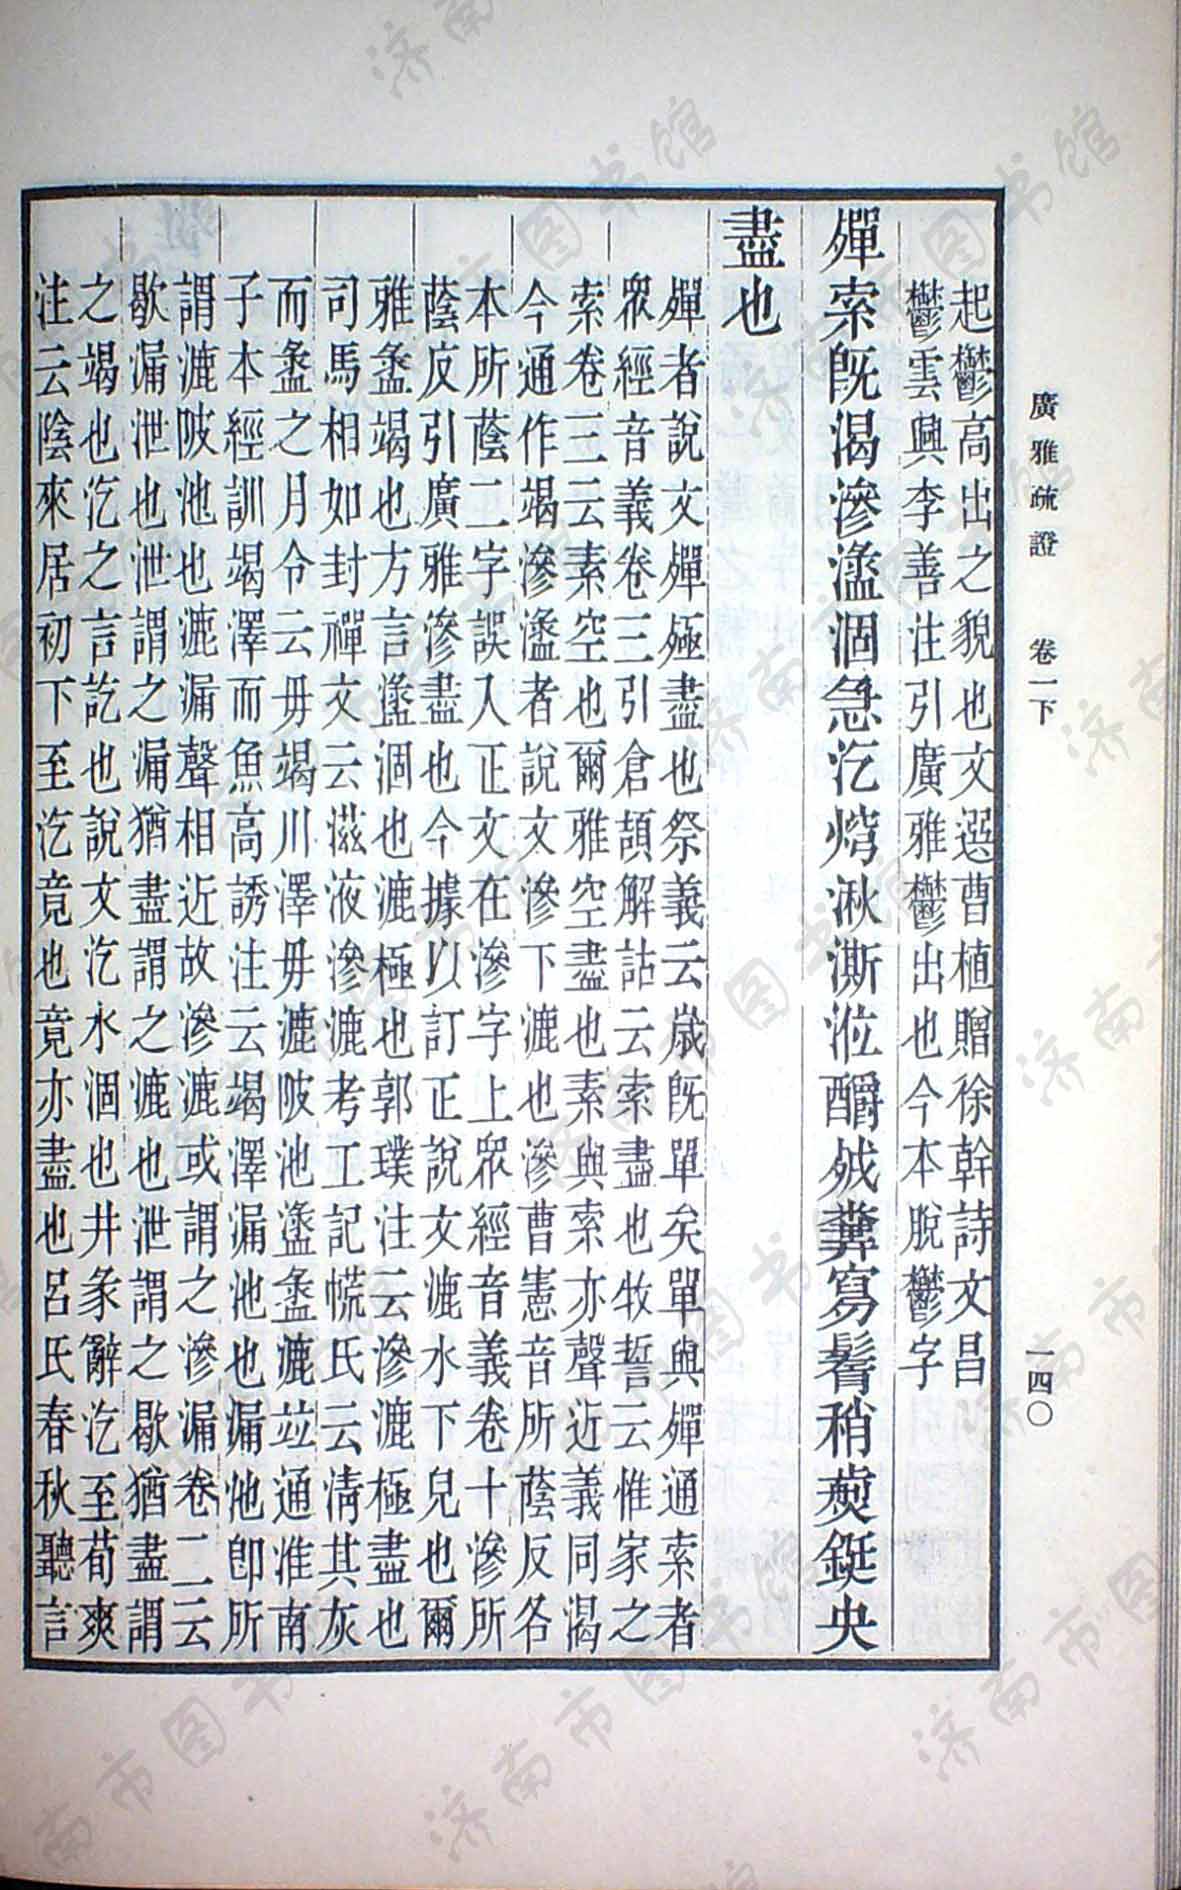 廣雅疏證　卷一下　一四〇
起鬱高出之貌也文選曹植贈徐幹詩文昌
鬱雲興李善注引廣雅鬱出也今本脫鬱字
殫索既渴滲盪涸急汔㷶湫澌㳌釂㱡糞寫鬊稍㷼鋌央
盡也
殫者說文殫殛盡也祭義云歲既單矣單與殫通索者
眾經音義卷三引倉頡解詁云索盡也牧誓云惟家之
索卷三云素空也爾雅空盡也素與索亦聲近義同渴
今通作竭滲盪者說文滲下漉也滲曹憲音所蔭反各
本所蔭二字誤入正文在滲字上眾經音義卷十滲所
蔭反引廣雅滲盡也今據以訂正說文漉水下皃也爾
雅盝竭也方言盪涸也漉極也郭璞注云滲漉極盡也
司馬相如封禪文云滋液滲漉考工記㡆氏云清其灰
而盝之月令云毋竭川澤毋漉陂池盪盝漉竝通淮南
子本經訓竭澤而魚高誘注云竭澤漏池也漏池即所
謂漉陂池也漉漏聲相近故滲漉或謂之滲漏卷二云
歇漏泄也泄謂之漏猶盡謂之漉也泄謂之歇猶盡謂
之竭也汔之言訖也說文汔水涸也井彖辭汔至荀爽
注云陰來居初下至汔竟也竟亦盡也呂氏春秋聽言